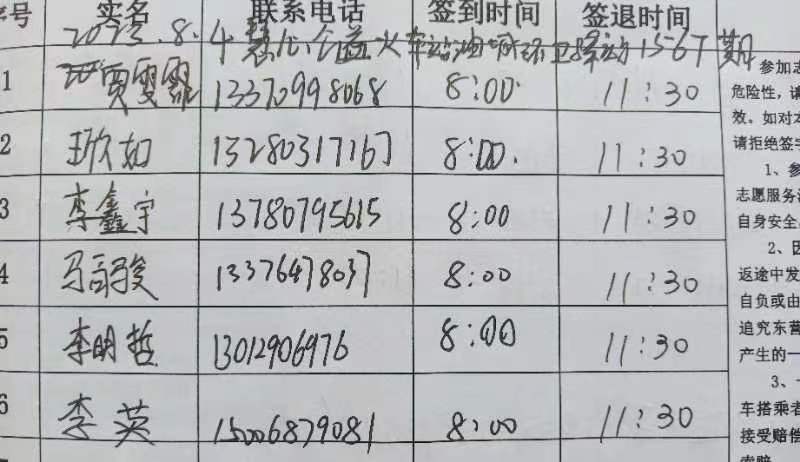 序号 实名 联系电话 签到时间 签退时间
2023.8.4 慧心公益火车站油城环卫驿站1567期
1 贾雯 13370998068 8:00 11:30
2 如 13280317167 8:00 11:30
3 李鑫宇 13780795615 8:00 11:30
4 马骏 13376478037 8:00 11:30
5 李明哲 13012906976 8:00 11:30
6 李英 15006879081 8:00 11:30
参加志
危险性，请
效。如对本
请拒绝签字
1、参
志愿服务活
自身安全
2、因
返途中发
自负或由
追究东营
产生的一
3、
车搭乘者
接受赔偿
索赔